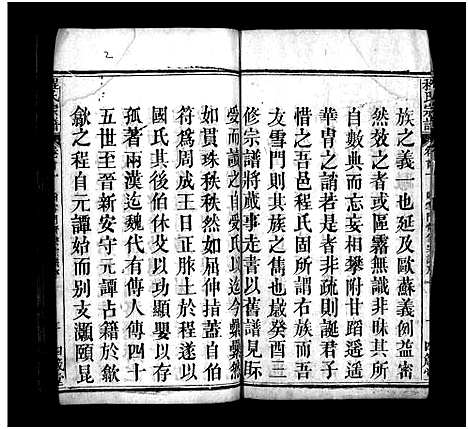 族之義一也延及歐蘇義例益密
然效之者或區霧無識非昧其所
自數典而忘妄相攀附甘蹈遙遙
華冑之誚者是非疏則誕君子
惜之吾邑程氏固所謂右族而吾
友雪門則其族之雋也歲癸酉三
修宗譜將蕆事走書以舊譜見眎
受而讀之自受氏以迄今纍纍然
如貫珠秩秩然屈伸指葢自伯
符為周成王日正脉土德遂以
國氏其後伯休父以功顯嬰以存
孤著兩漢迄魏代有傳人傳四十
五世至晉新安守元譚古籍於歙
歙之程自元譚始而别支灝頤昆